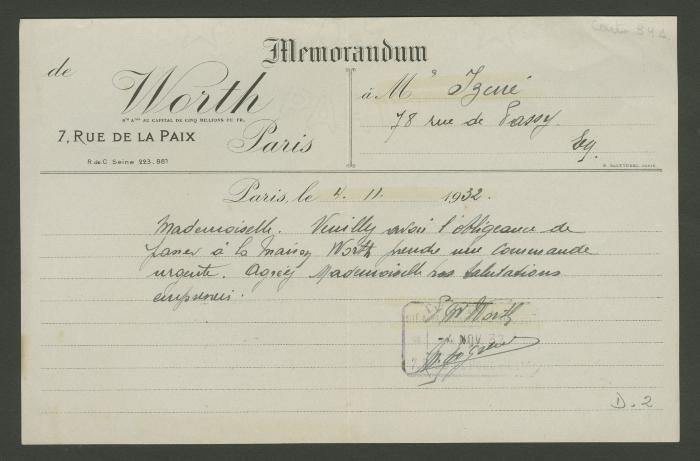 Memorandum
de
Worth
Sté Ame AU CAPITAL DE CINQ MILLIONS DE FR.
7, RUE DE LA PAIX
Paris
R. du C. Seine 223.881
à M
78 rue de Passy.
Paris, le 4. 11. 1932.
Mademoiselle. Veuillez avoir l'obligeance de
passer à la Maison Worth prendre une commande
urgente. Agréez Mademoiselle nos salutations
empressées.
Worth
4 NOV 32
D. 2